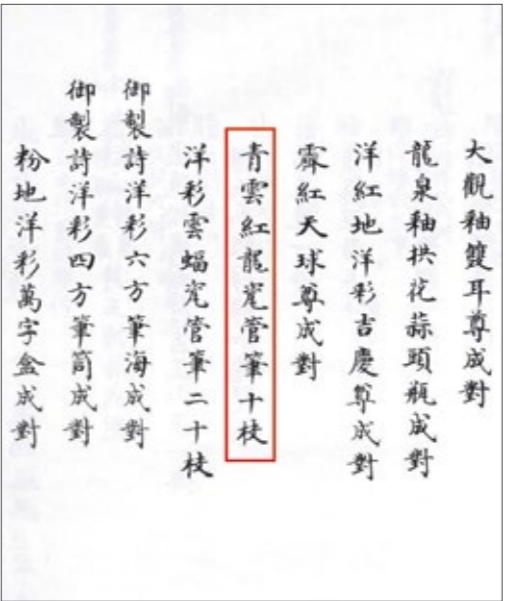 大觀釉雙耳尊成對
龍泉釉拱花蒜頭瓶成對
洋紅地洋彩吉慶尊成對
霽紅天球尊成對
青雲紅龍瓷管筆十枝
洋彩雲蝠瓷管筆二十枝
御製詩洋彩六方筆海成對
御製詩洋彩四方筆筒成對
粉地洋彩萬字盒成對